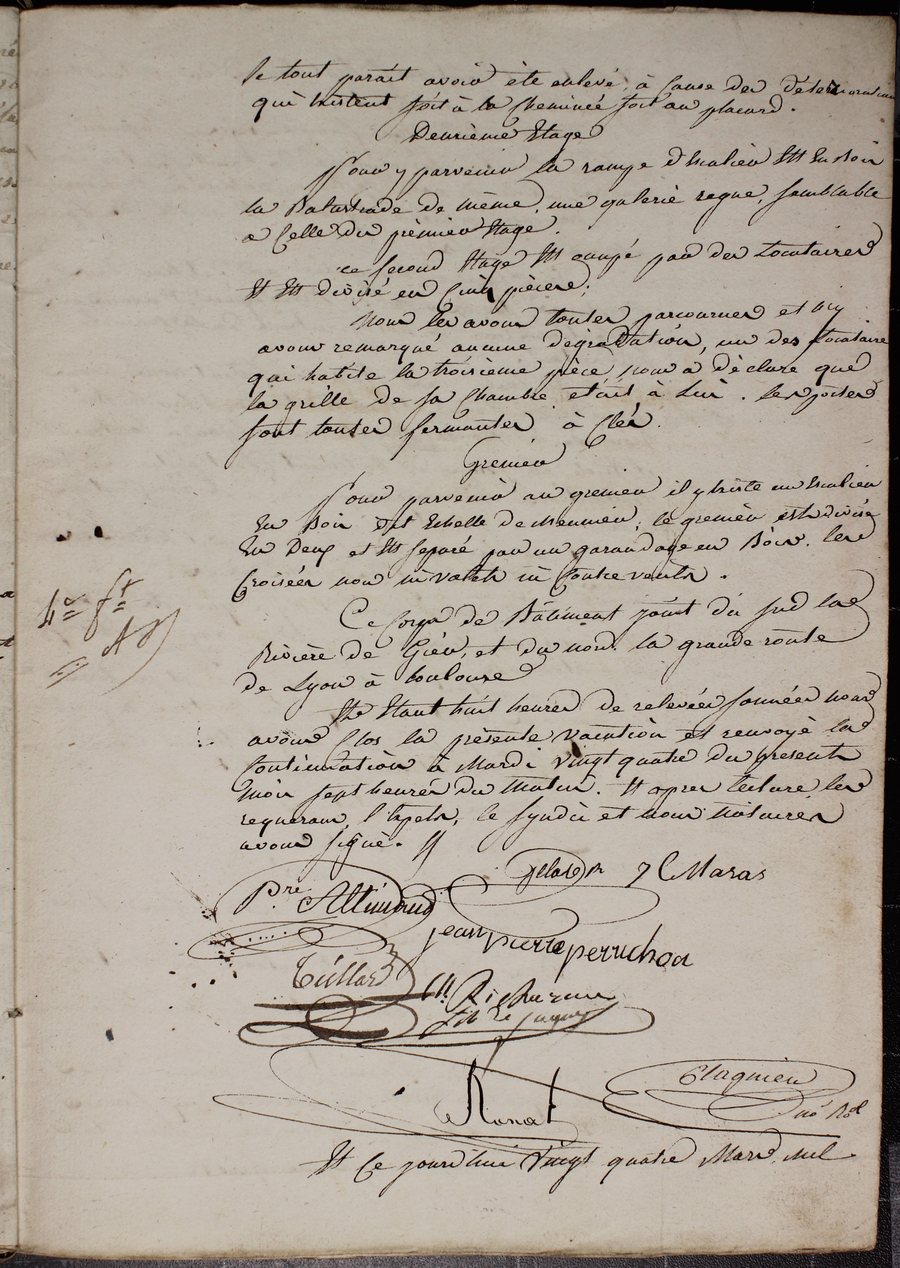 le tout parait avoir été enlevé, à Cause des Déteriorations
qui Existent soit à la Cheminée soit au placard.
Deuxième Etage
Pour y parvenir la rampe d'Escalier Est En Bois
la Balustrade de même, une galerie regne, semblable
a Celle du prèmier Etage.
Ce second Etage Est occupé par des Locataires
Et Est divisé en Cinq pièces;
Nous les avons toutes parcourues et n'y
avons remarqué aucune dégradation, un des Locataire
qui habite la troisieme pièce nous a dèclare que
la grille de sa Chambre etait à Lui. les portes
sont toutes fermantes à Clés.
Grenier
Pour parvenir au grenier il y Existe un Escalier
En Bois dit Echelle de Meunier; le grenier est divisé
En Deux et Est separé par un garandage en Bois. les
Croisées non ni vatels ni Contrevents.
Ce Corps de Bâtiment joint du sud la
Rivière de Gier, et du nord la grande route
de Lyon à toulouse
Et Etant huit heures de relevées sonnées nous
avons Clos la présente vacation et renvoyé la
Continuation à Mardi vingt quatre du présent
mois sept heures du Matin. Et après lecture les
requerans, l'Expert, le syndic et nous Notaires
avons signé.
4e ft
Delas 7 C Maras
Pre Allimand
jean pierre perruchon
Tillar
Cl. Richar
fils de
Ronat
Claquien
Et Ce jourd'hui Vingt quatre Mars Mil